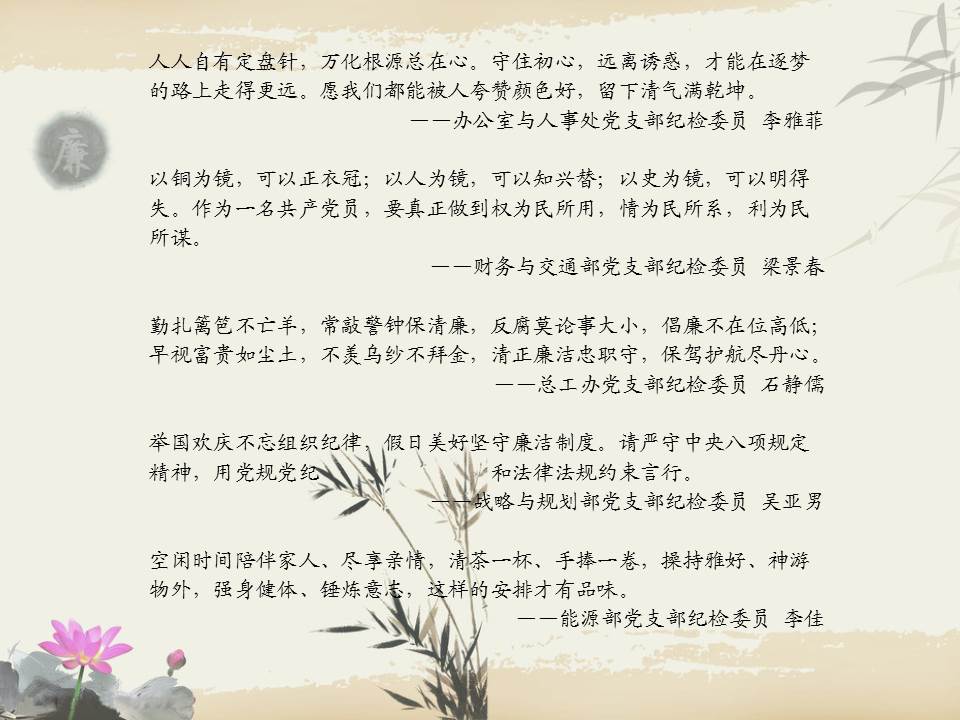 人人自有定盘针，万化根源总在心。守住初心，远离诱惑，才能在逐梦
的路上走得更远。愿我们都能被人夸赞颜色好，留下清气满乾坤。
——办公室与人事处党支部纪检委员 李雅菲
廉
以铜为镜，可以正衣冠；以人为镜，可以知兴替；以史为镜，可以明得
失。作为一名共产党员，要真正做到权为民所用，情为民所系，利为民
所谋。
——财务与交通部党支部纪检委员 梁景春
勤扎篱笆不亡羊，常敲警钟保清廉，反腐莫论事大小，倡廉不在位高低；
早视富贵如尘土，不羡乌纱不拜金，清正廉洁忠职守，保驾护航尽丹心。
——总工办党支部纪检委员 石静儒
举国欢庆不忘组织纪律，假日美好坚守廉洁制度。请严守中央八项规定
精神，用党规党纪 和法律法规约束言行。
——战略与规划部党支部纪检委员 吴亚男
空闲时间陪伴家人、尽享亲情，清茶一杯、手捧一卷，操持雅好、神游
物外，强身健体、锤炼意志，这样的安排才有品味。
——能源部党支部纪检委员 李佳